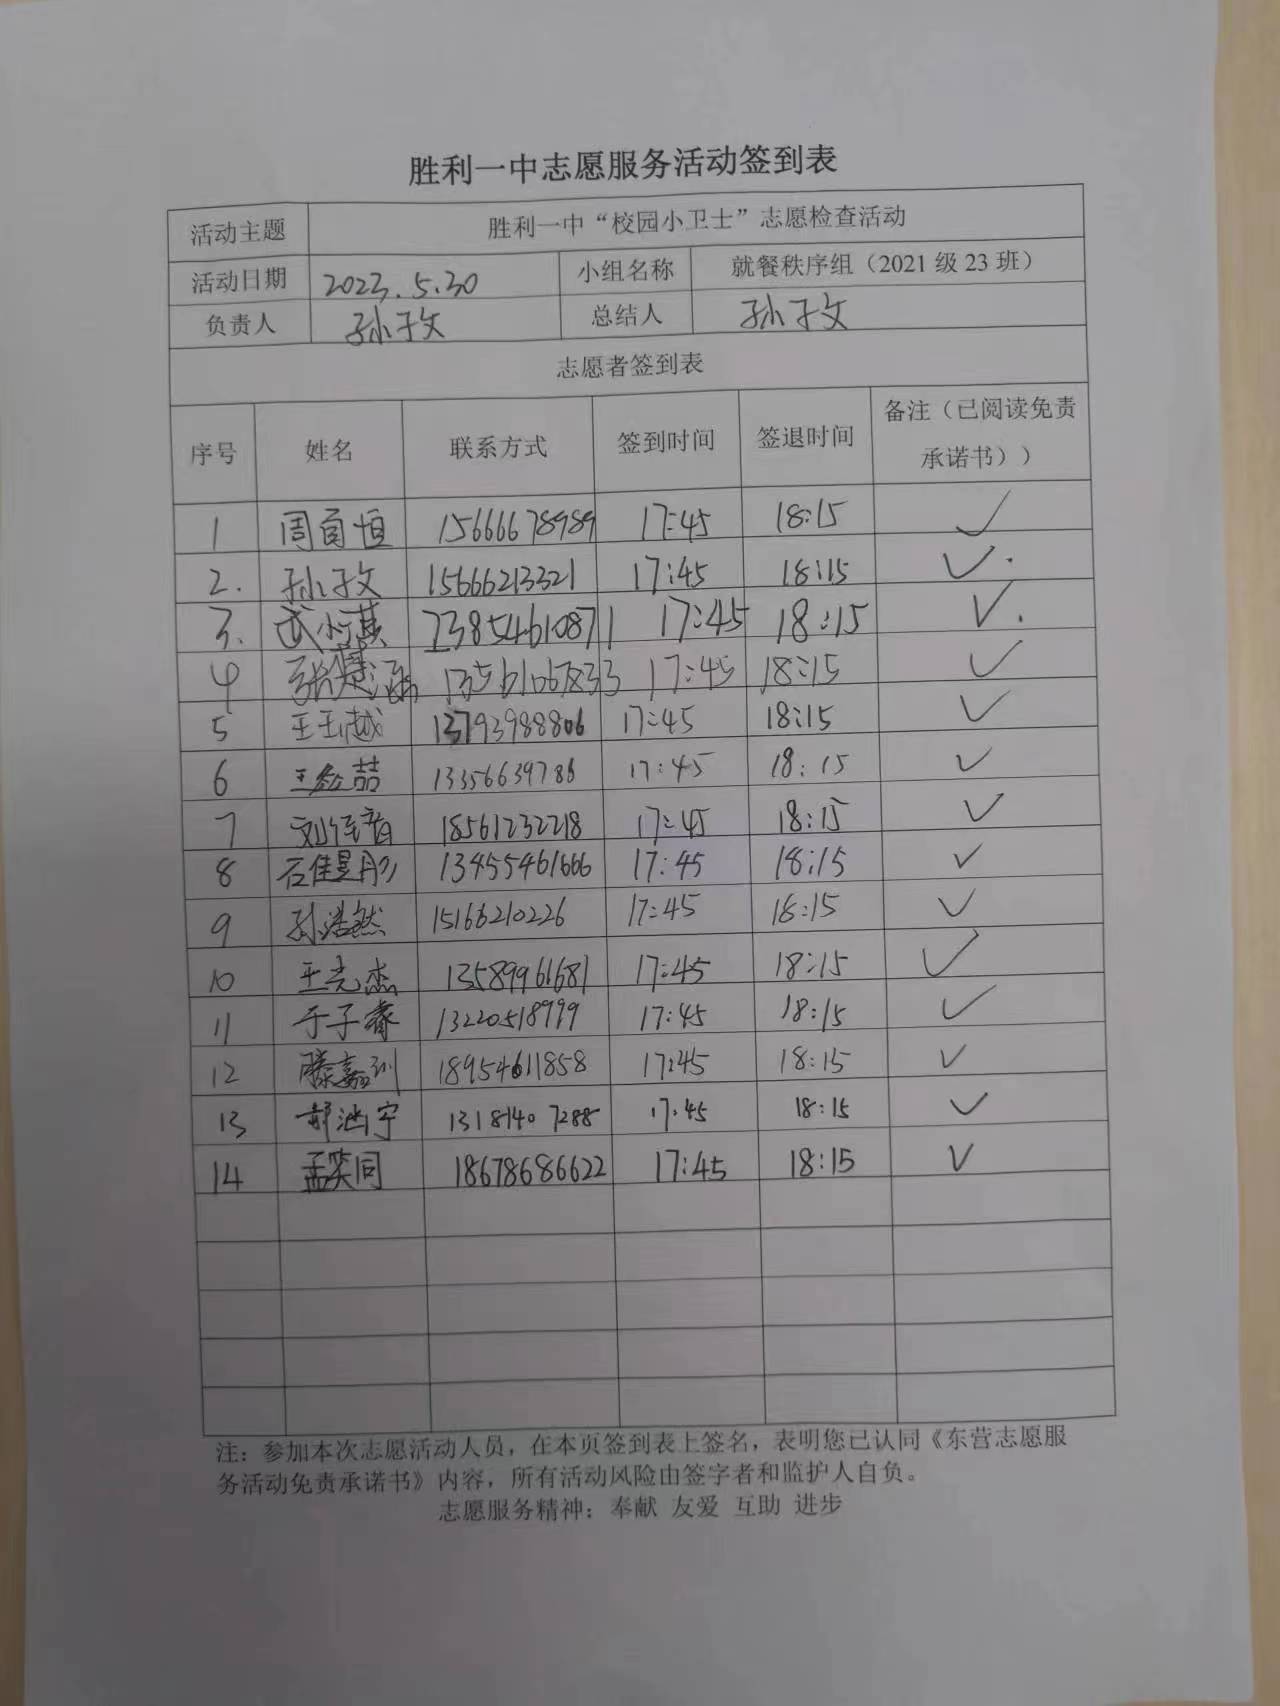 胜利一中志愿服务活动签到表
活动主题 胜利一中“校园小卫士”志愿检查活动
活动日期 2023.5.30 小组名称 就餐秩序组（2021 级 23 班）
负责人 孙子文 总结人 孙子文
志愿者签到表
序号 姓名 联系方式 签到时间 签退时间 备注（已阅读免责承诺书））
1 周 恒 15666678989 17:45 18:15 ✓
2. 孙子文 15666213321 17:45 18:15 ✓.
3. 武 13854610871 17:45 18:15 ✓.
4 张楚涵 13561067833 17:45 18:15 ✓
5 王玉越 13793988806 17:45 18:15 ✓
6 王 喆 13356639786 17:45 18:15 ✓
7 刘 18561232218 17:45 18:15 ✓
8 石佳昱彤 13455461666 17:45 18:15 ✓
9 孙浩然 15166210226 17:45 18:15 ✓
10 王光杰 13589961681 17:45 18:15 ✓
11 于子睿 13220518999 17:45 18:15 ✓
12 滕嘉训 18954611858 17:45 18:15 ✓
13 郝 宇 13181407288 17:45 18:15 ✓
14 孟笑同 18678686622 17:45 18:15 ✓
注：参加本次志愿活动人员，在本页签到表上签名，表明您已认同《东营志愿服
务活动免责承诺书》内容，所有活动风险由签字者和监护人自负。
志愿服务精神：奉献 友爱 互助 进步